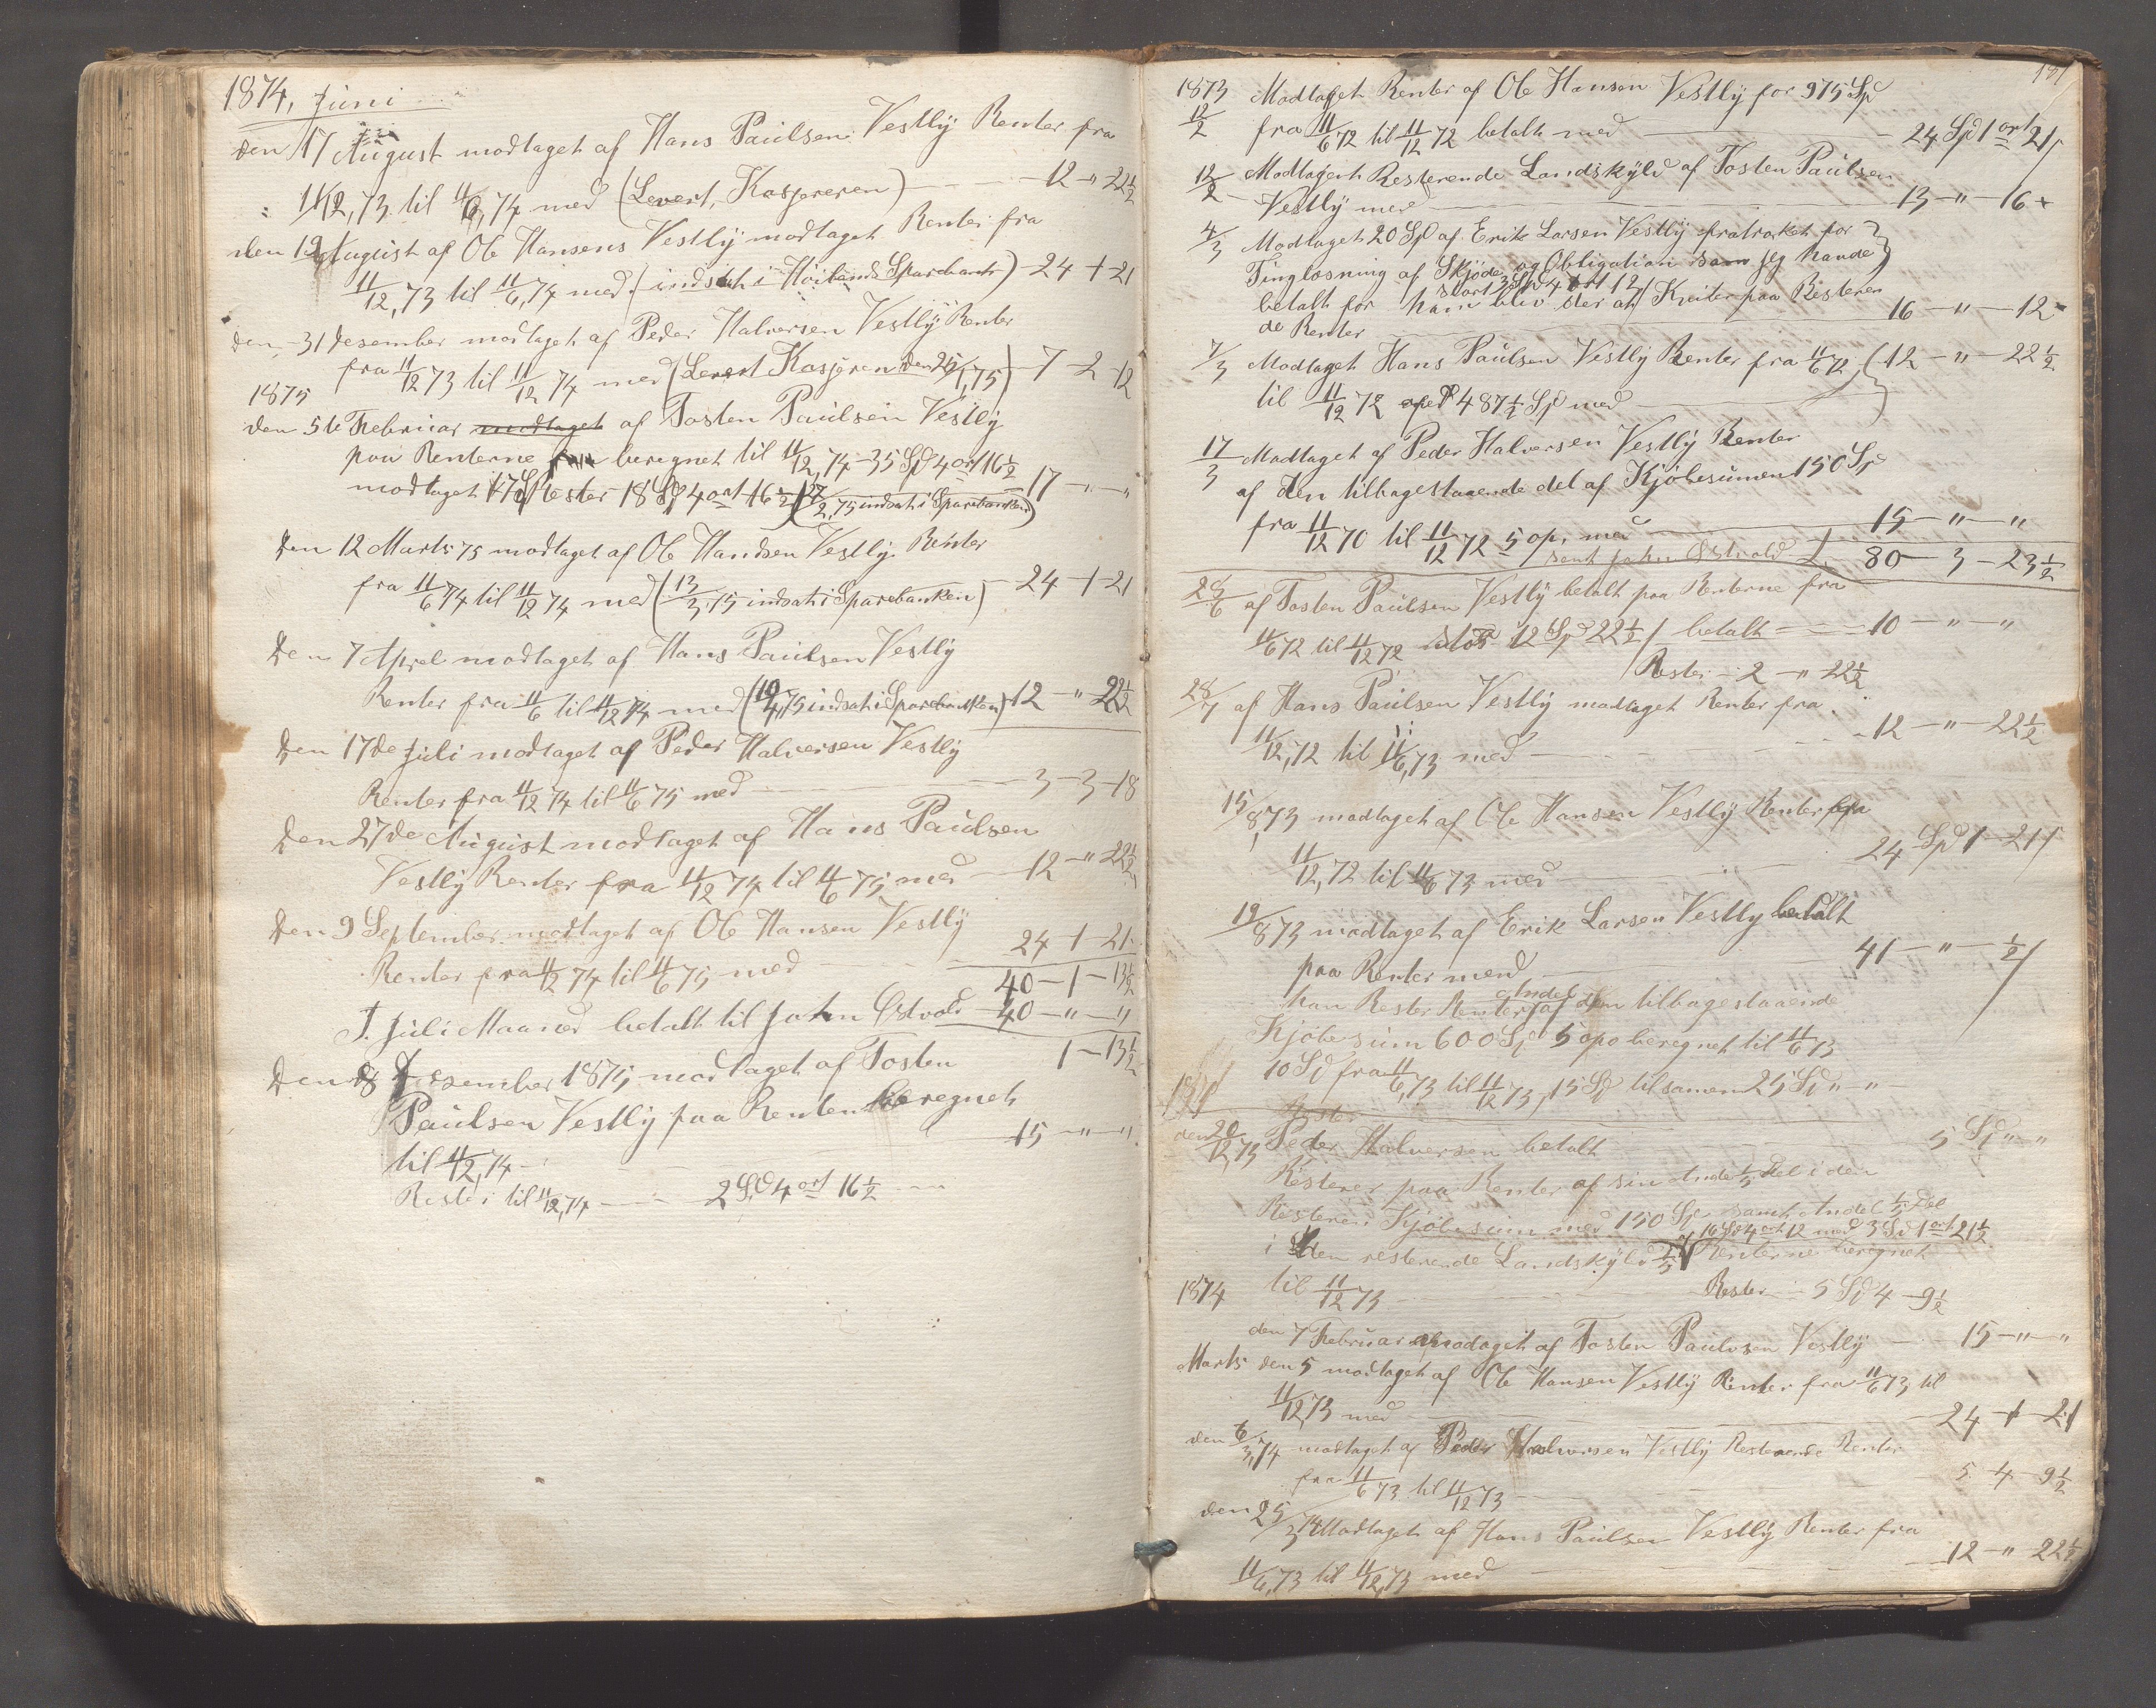 1874, Juni
den 17 August modtaget af Hans Paulsen Vestly Renter fra
11/12,73 til 11/6,74 med (Levert, Kasjereren) — 12 - " 22½
den 19 August af Ole Hansens Vestly modtaget Renter fra
11/12,73 til 11/6,74 med (indsat i Höilands Sparebank) - 24 - 1 - 21
den 31 Desember modtaget af Peder Halversen Vestly Renter
fra 11/12 73 til 11/12 74 med (Levert Kasjeren den 25/1,75) - 7 - 2 - 12
1875
den 5te Februar modtaget af Tosten Paulsen Vestly
paa Renterne beregnet til 11/12,74 - 35 Spd 4 ort 16½
modtaget 17 Spd Rester 18 Spd 4 ort 16½ (27/2,75 indsat i Sparebanken) 17 - " - "
Den 12 Marts 75 modtaget af Ole Handsen Vestly Renter
fra 11/6 74 til 11/12 74 med (13/3,75 indsat i Sparebanken) - 24 - 1 - 21
Den 7 Aprel modtaget af Hans Paulsen Vestly
Renter fra 11/6 til 11/12 74 med (10/4,75 indsat i Sparebanken) 12 - " - 22½
Den 17de Juli modtaget af Peder Halversen Vestly
Renter fra 11/12 74 til 11/6 75 med — 3 - 3 - 18
Den 27de August modtaget af Hans Paulsen
Vestly Renter fra 11/12 74 til 11/6 75 med — 12 - " 22½
Den 9 September modtaget af Ole Hansen Vestly
Renter fra 11/12 74 til 11/6 75 med 24 - 1 - 21
40 - 1 - 13½
I. Juli Maaned betalt til John Ostvold 40 - " - "
1 - 13½
Den 8 Desember 1875 modtaget af Tosten
Paulsen Vestly paa Renten beregnet
til 11/12,74 — 15 - " - "
Rester til 11/12,74 — 2 Spd 4 ort 16½
181
1873 Modtaget Renter af Ole Hansen Vestly for 975 Spd
12/2 fra 11/6 72 til 11/12 72 betalt med — 24 Spd 1 ort 21
12/2 Modtaget Resterende Landskyld af Tosten Paulsen
Vestly med — 13 - " - 16
4/3 Modtaget 20 Spd af Erik Larsen Vestly fratrokket for
Tinglæsning af Skjöde og Obligation som jeg havde
stort 3 Spd 4 ort 12
betalt for ham blev der at Kviter paa Resteren
de Renter — 16 - " - 12
7/3 Modtaget Hans Paulsen Vestly Renter fra 11/6 72 (12 - " - 22½
til 11/12 72 af 487½ Spd med
17/3 Modtaget af Peder Halversen Vestly Renter
af den tilbagestaaende del af Kjöbesumen 150 Spd
fra 11/12 70 til 11/12 72 5 op, med — 15 - " - "
sent John Ostvold 80 - 3 - 23½
26/6 af Tosten Paulsen Vestly betalt paa Renterne fra
11/6 72 til 11/12 72 stor 12 Spd 22½ betalt — 10 - " - "
Rester - 2 - " 22½
28/7 af Hans Paulsen Vestly modtaget Renter fra
11/12,72 til 11/6,73 med — 12 - " - 22½
15/8,73 modtaget af Ole Hansen Vestly Renter fra
11/12,72 til 11/6 73 med — 24 Spd 1 - 21
19/8 73 modtaget af Erik Larsen Vestly betalt
paa Renter med — 41 - " - ½
Andel
han Rester Renter af den tilbagestaaende
Kjöbesum 600 Spd 5 opo beregnet til 11/6 73
10 Spd fra 11/6,73 til 11/12 73, 15 Spd tilsamen 25 Spd " - "
den 20/12,73 Peder Halversen betalt — 5 Spd " - "
Resterer paa Renter af sin Andel 1/5 Del i den
Resteren Kjöbesum med 150 Spd samt Andel 1/5 Del
af 16 Spd 4 ort 12 med 3 Spd 1 ort 21½
i den resterende Landskyld 1/5 Renterne beregnet
til 11/12 73 — Rester - 5 Spd 4 - 9½
1874
den 7 Februar modaget af Tosten Paulsen Vestly — 15 - " - "
Marts den 5 modtaget af Ole Hansen Vestly Renter fra 11/6 73 til
11/12,73 med — 24 - 1 - 21
den 6/3,74 modtaget af Peder Halversen Vestly Resterende Renter
fra 11/6 73 til 11/12 73 — 5 - 4 - 9½
den 25/3 74 Modtaget af Hans Paulsen Vestly Renter fra
11/6,73 til 11/12,73 med — 12 - " 22½